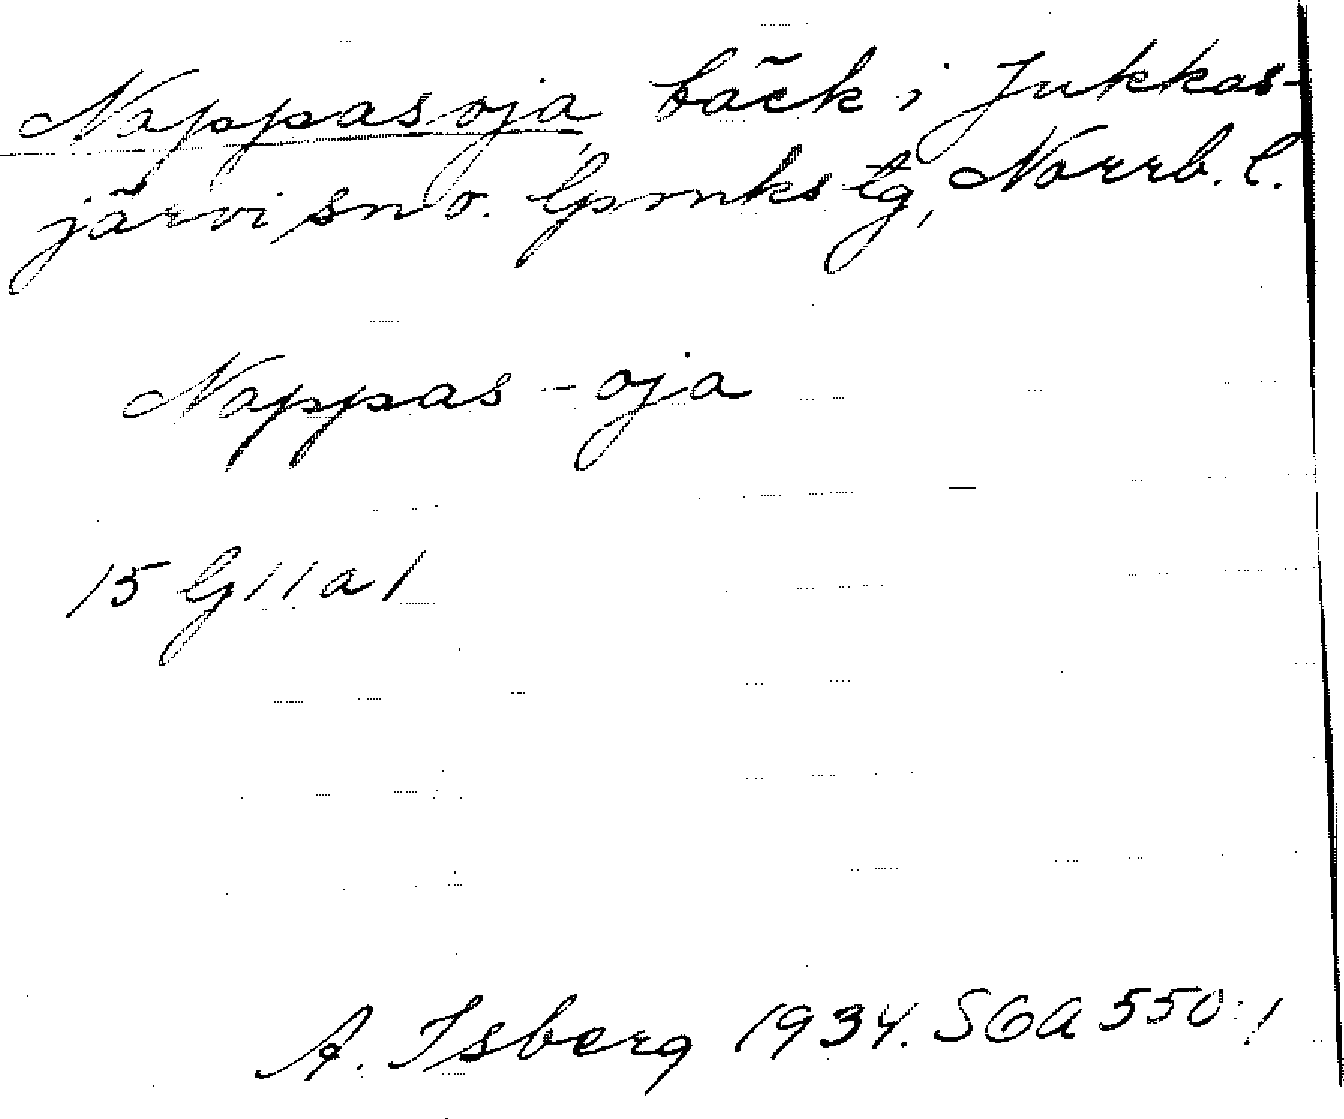 Nappasoja, bäck i Jukkas-
järvi sn o. lpmks tg, Norrb. l.
Nappas-oja
15 G 11 a 1
A. Isberg 1934. SOA 550:1